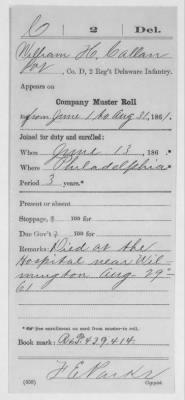 C 2 Del.
William H. Callan
Pvt, Co. D, 2 Reg't Delaware Infantry.
Appears on
Company Muster Roll
for from June 1 to Aug 31, 1861.
Joined for duty and enrolled:
When June 13, 1861.*
Where Philadelphia*
Period 3 years.*
Present or absent
Stoppage, $ 100 for
Due Gov't $ 100 for
Remarks: Died at the
Hospital near Wil-
mington Aug 29th
61
*See enrollment on card from muster-in roll.
Book mark: R&P. 429,414
F E Parks
(358) Copyist.